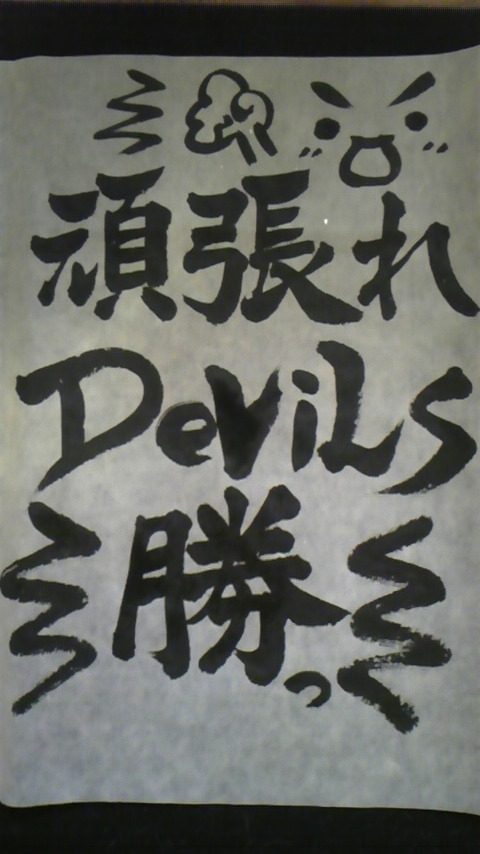 頑張れ
DeViLs
勝っ